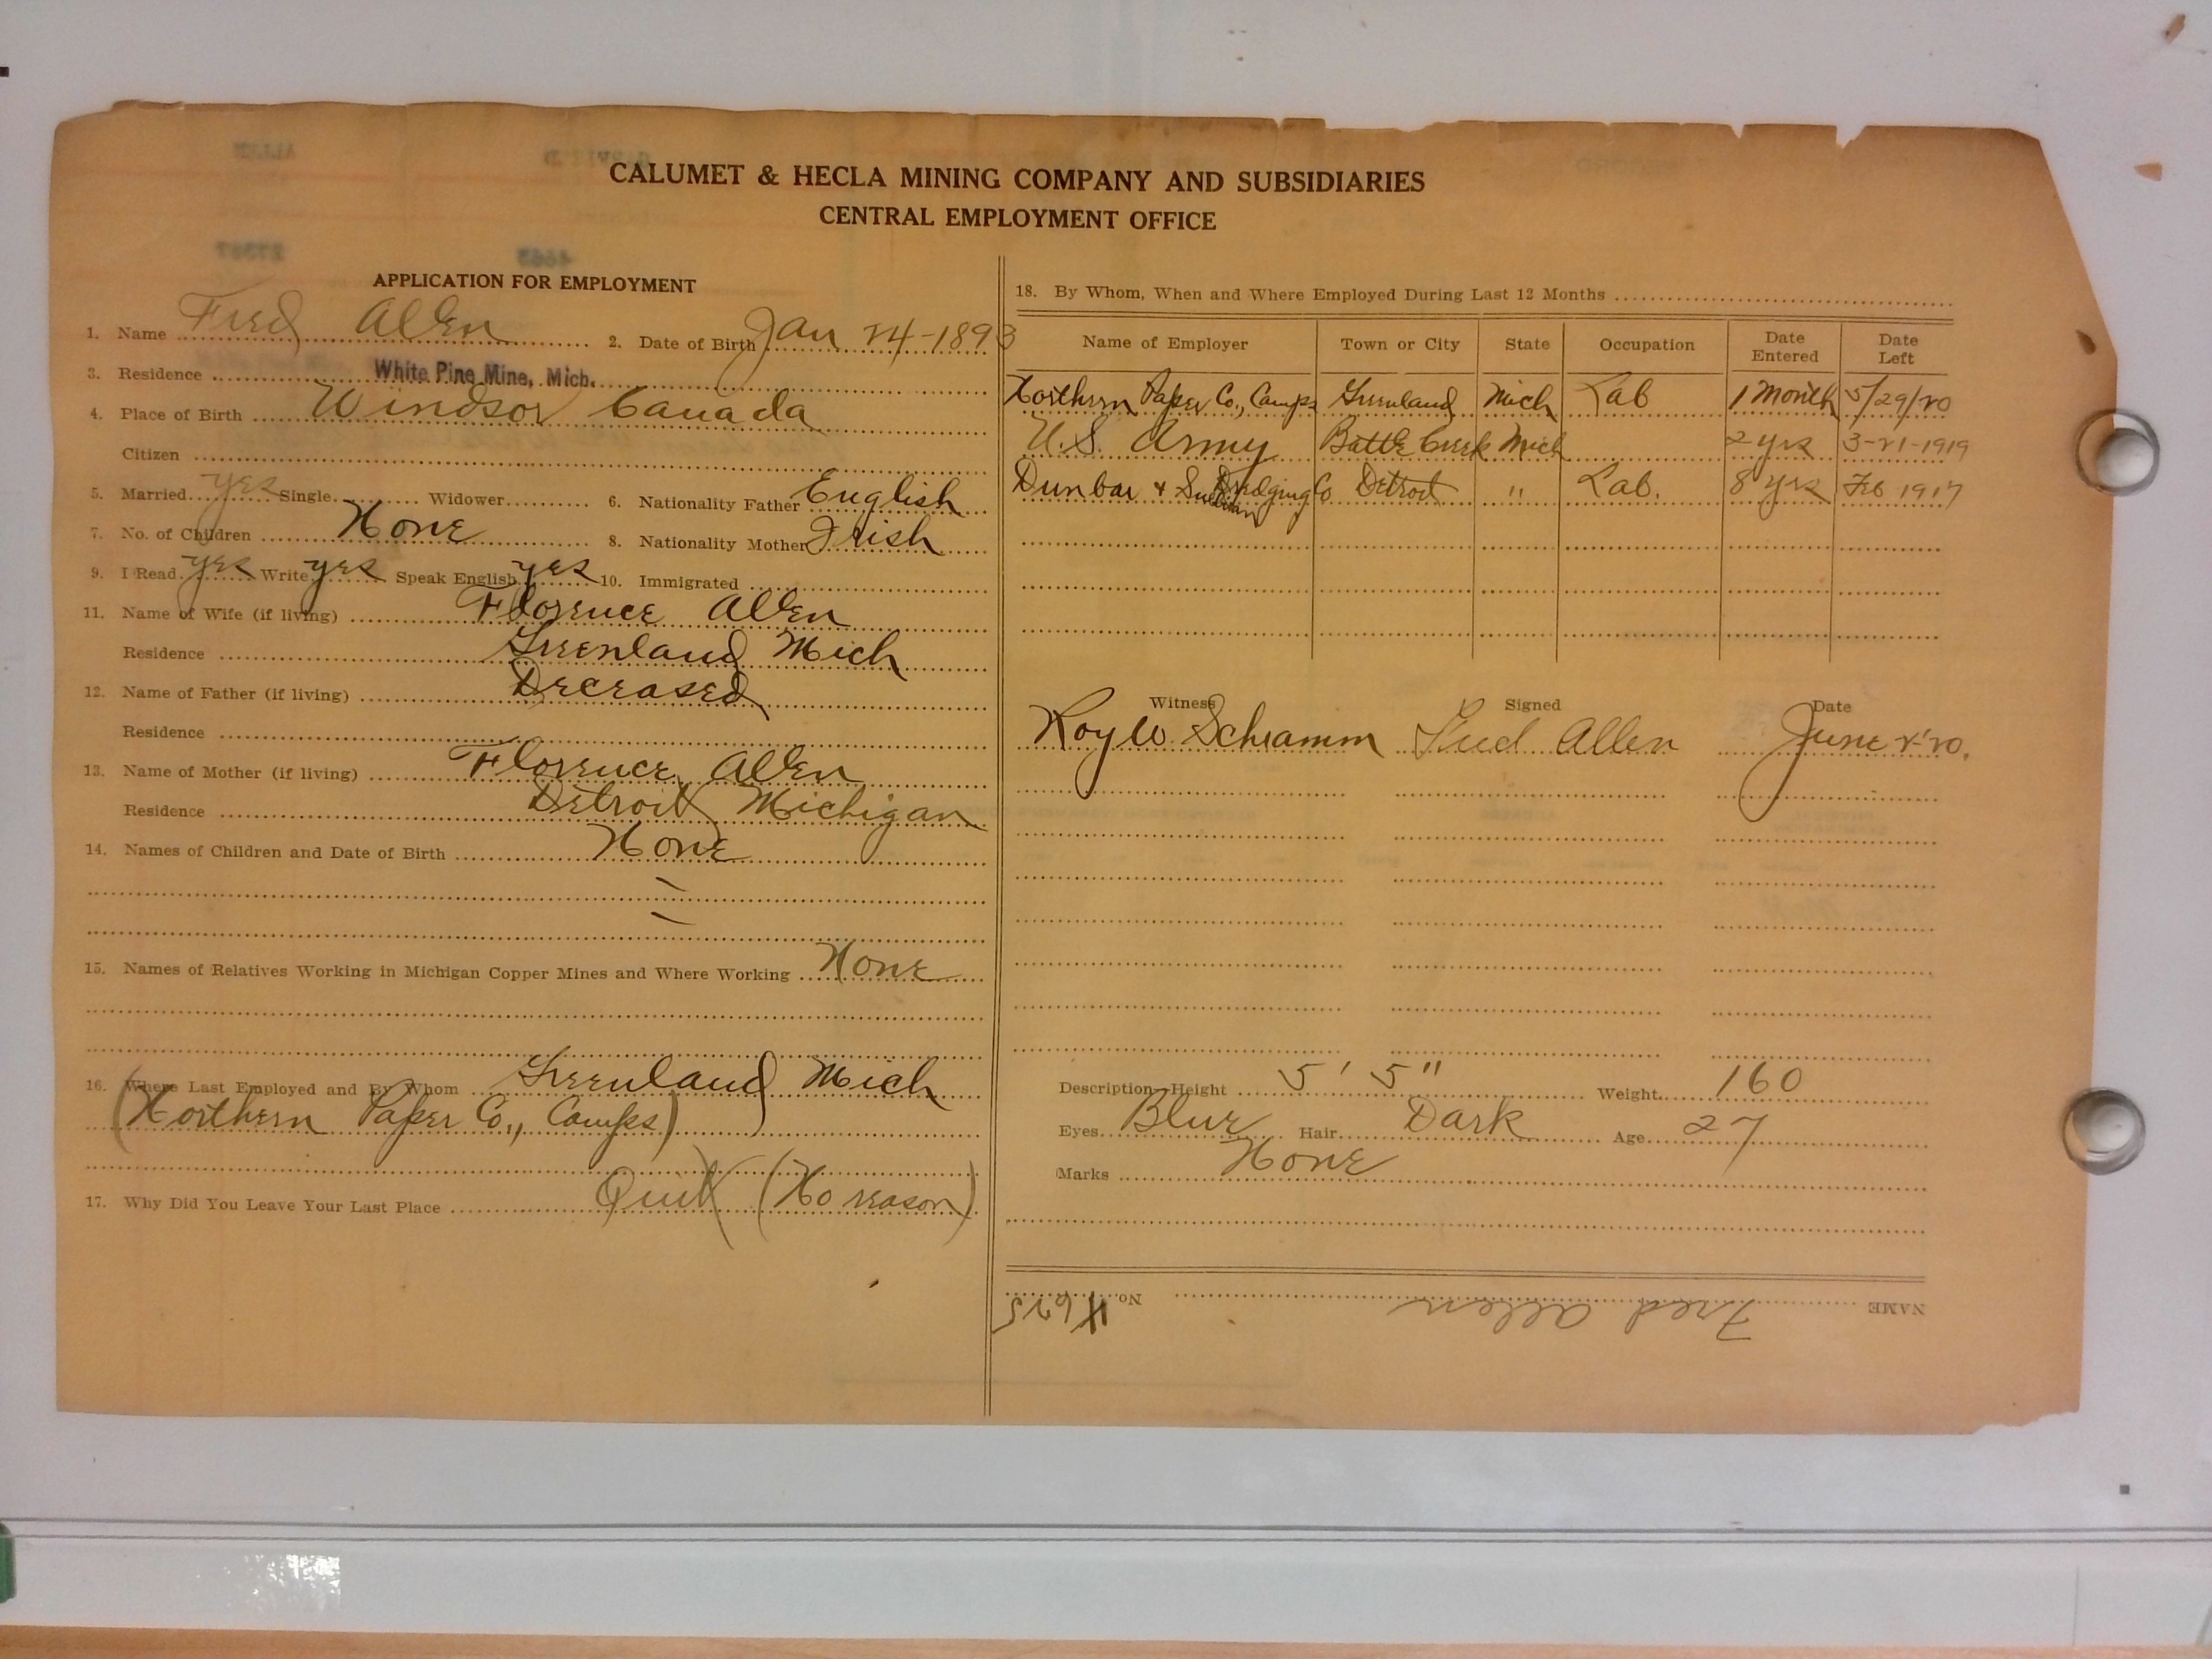 CALUMET & HECLA MINING COMPANY AND SUBSIDIARIES
CENTRAL EMPLOYMENT OFFICE
APPLICATION FOR EMPLOYMENT
1. Name Fred Allen 2. Date of Birth Jan 24-1893
3. Residence White Pine Mine, Mich.
4. Place of Birth Windsor Canada
Citizen
5. Married yes Single Widower 6. Nationality Father English
7. No. of Children None 8. Nationality Mother Irish
9. I Read yes Write yes Speak English yes 10. Immigrated
11. Name of Wife (if living) Florence Allen
Residence Greenland Mich
12. Name of Father (if living) Deceased
Residence
13. Name of Mother (if living) Florence Allen
Residence Detroit Michigan
14. Names of Children and Date of Birth None
15. Names of Relatives Working in Michigan Copper Mines and Where Working None
16. Where Last Employed and By Whom Greenland Mich
(Northern Paper Co., Camps)
17. Why Did You Leave Your Last Place Quit (No reason)
18. By Whom, When and Where Employed During Last 12 Months
Name of Employer Town or City State Occupation Date Entered Date Left
Northern Paper Co., Camps Greenland Mich Lab 1 Month 5/29/20
U.S. Army Battle Creek Mich 2 yrs 3-21-1919
Dunbar & Sullivan Dredging Co Detroit " Lab. 8 yrs Feb 1917
Witness Signed Date
Roy W Schramm Fred Allen June 2-'20.
Description—Height 5' 5" Weight 160
Eyes Blue Hair Dark Age 27
Marks None
NAME Fred Allen No. 4625